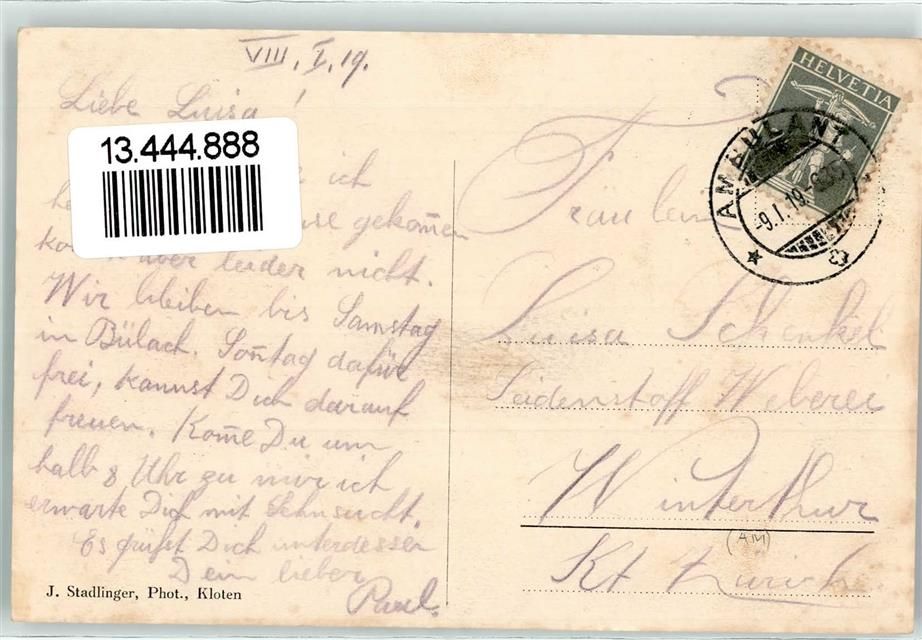 VIII. I. 19.
Liebe Luisa!
13.444.888
ich
gekom̄en
aber leider nicht.
Wir bleiben bis Samstag
in Bülach. Son̄tag dafür
frei, kannst Dich darauf
freuen. Kom̄e Du um
halb 8 Uhr zu mir ich
erwarte Dich mit Sehnsucht.
Es grüßt Dich unterdessen
Dein lieber
Paul.
J. Stadlinger, Phot., Kloten
HELVETIA
AMBULANT
-9.I.19.
Fräulein
Luisa Schenkel
Seidenstoff Weberei
Winterthur
(AM)
Kt Zürich.